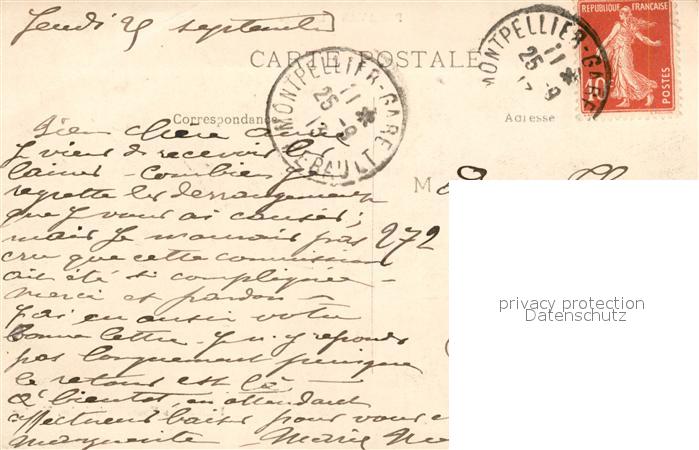 Jeudi 25 septembre
CARTE POSTALE
Correspondance
Adresse
MONTPELLIER-GARE
11
25-9
HERAULT
MONTPELLIER-GARE
11
25
9
REPUBLIQUE FRANÇAISE
10
POSTES
Bien chère amie
Je viens de recevoir les
laines - Combien je
regrette les dérangements
que je vous ai causés;
mais je n'aurais pas
cru que cette commission
ait été si compliquée -
merci et pardon -
J'ai eu aussi votre
bonne lettre. Je n'y réponds
pas longuement puisque
le retour est là -
A bientôt, en attendant
affectueux baisers pour vous
marguerite Marie
M
272
privacy protection
Datenschutz